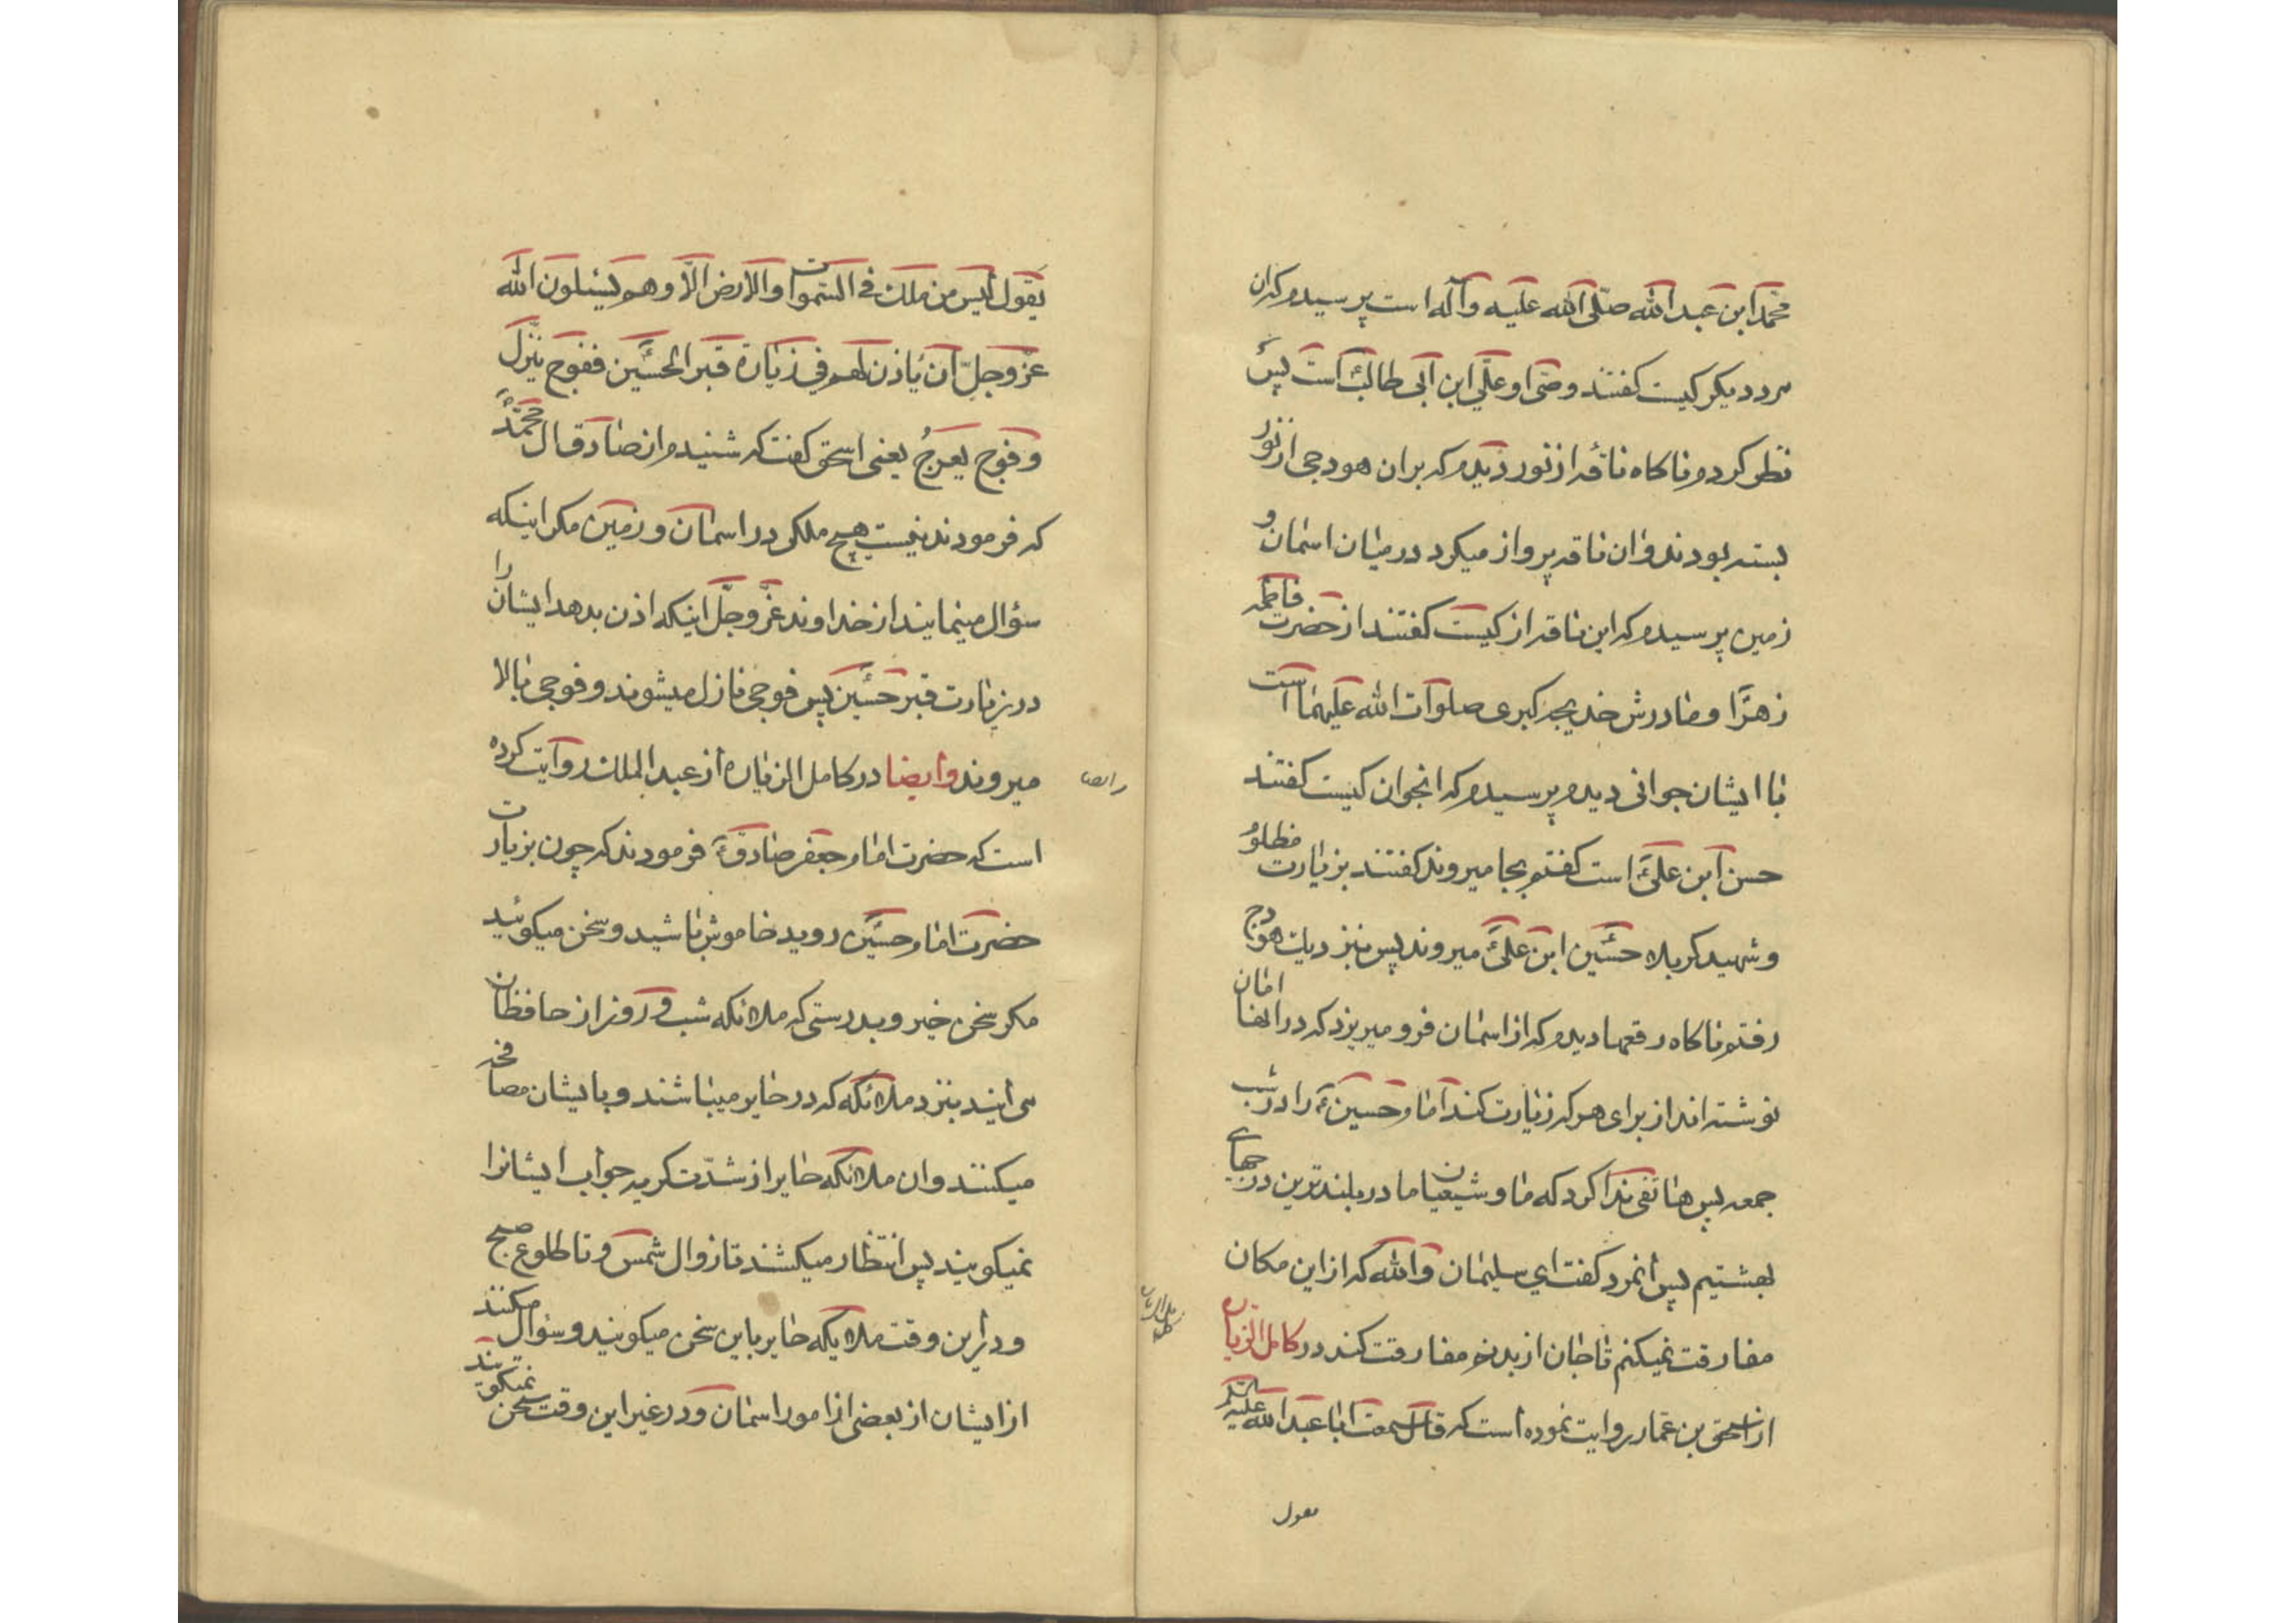 محمّد ابن عبد الله صلّى الله عليه وآله است پرسیدم که ان
مرد دیکر کیست کفتند وصّی او علّی ابن ابی طالبؑ است پس
نظر کردم ناکاه ناقۀ از نور دیدم که بران هودجی از نور
بسته بودند وان ناقه پرواز میکرد در میان اسمان و
زمین پرسیدم که این ناقه از کیست کفتند از حضرت فاطمه
زهرؑا و مادرش خدیجه کبری صلوات الله علیهما است
با ایشان جوانی دیدم پرسیدم که انجوان کیست کفتند
حسن ابن علیؑ است کفتم بجا میروند کفتند بزیارت مظلوم
وشهید کربلاء حسؑین ابن علیؑ میروند پس بنزدیك هودج
رفتم ناکاه رقعها دیدم که از اسمان فرو میریزد که در انها امان
نوشته اند از برای هر که زیارت کند امام حسینؑ را در شب
جمعه پس هاتفی ندا کرد که ما و شیعیان ما در بلند ترین درجهای
بهشتیم پس انمرد کفت ای سلیمان والله که از این مکان
مفارقت نمیکنم تا جان از بدنم مفارقت کند در کامل الزیاره
از اسحق بن عمّار روایت نموده است که قال سمعت ابا عبد الله علیه السّلام
يقول
كامل الزياره
يَقول ليس من ملك في السّموات والارض الّا وهم يسئلون الله
عزّ وجلّ ان يٵذن لهم في زيارة قبر الحسؑين ففوج ينّزل
وفوج يعرجُ یعنی اسحق کفت که شنیدم از صادق ال محمّدؑ
که فرمودند نیست هیچ ملکی در اسمان و زمین مکر اینکه
سؤال مینمایند از خداوند عزّ وجلّ اینکه اذن بدهد ایشان را
در زیارت قبر حسؑین پس فوجی نازل میشوند و فوجی بالا
میروند وایضا در کامل الزیاره از عبد الملك روایت کرده
وايضا
است که حضرت امام جعفر صادقؑ فرمودند که چون بزیارت
حضرت امام حسؑین روید خاموش باشید و سخن میکوئید
مکر سخن خیر و بدرستی که ملائکه شب و روز از حافظان
می ایند بنزد ملائکه که در حایر میباشند و بایشان مصافحه
میکنند وان ملائکه حایر از شدّت کریه جواب ایشانرا
نمیکویند پس انتظار میکشند تا زوال شمس و تا طلوع صبح
و در این وقت ملایکه حایر باین سخن میکویند و سؤال میکنند
از ایشان از بعضی از امور اسمان و در غیر این وقت سخن نمیکویند